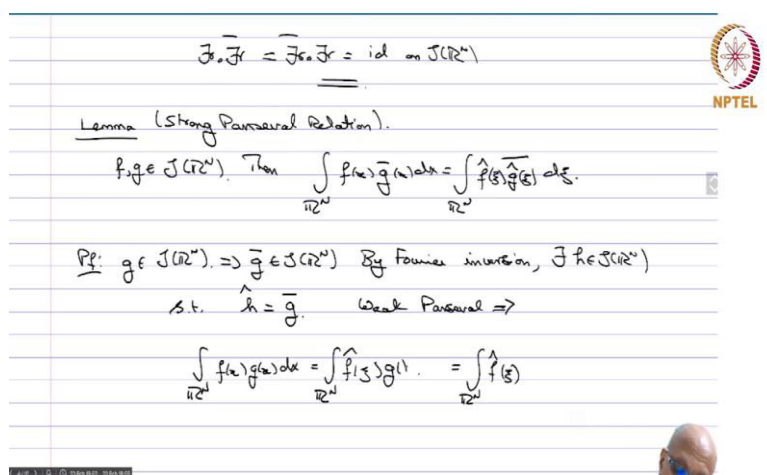 ℱ∘ℱ̄ = ℱ̄∘ℱ = id on 𝒮(ℝᴺ)
NPTEL
Lemma (Strong Parseval Relation).
f,g ∈ 𝒮(ℝᴺ). Then ∫_{ℝᴺ} f(x) ḡ(x) dx = ∫_{ℝᴺ} f̂(ξ) \overline{ĝ(ξ)} dξ.
Pf: g ∈ 𝒮(ℝᴺ). => ḡ ∈ 𝒮(ℝᴺ) By Fourier inversion, ∃ h ∈ 𝒮(ℝᴺ)
s.t. ĥ = ḡ. Weak Parseval =>
∫_{ℝᴺ} f(x) g(x) dx = ∫_{ℝᴺ} f̂(ξ) g( ). = ∫_{ℝᴺ} f̂(ξ)